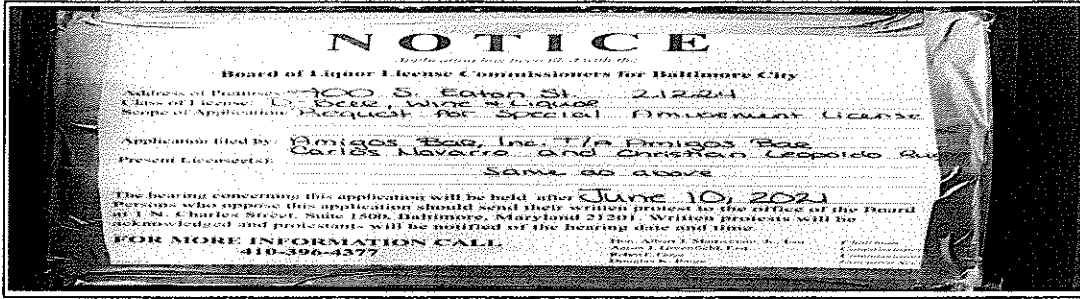 NOTICE
Application has been filed with the
Board of Liquor License Commissioners for Baltimore City
Address of Premises: 900 S. Eaton St. 21224
Class of License: D, Beer, Wine & Liquor
Scope of Application: Request for Special Amusement License
Application filed by: Amigos Bar, Inc. T/A Amigos Bar
Carlos Navarro and Christian Leopoldo
Present Licensee(s):
Same as above
The hearing concerning this application will be held after June 10, 2021
Persons who oppose this application should send their written protest to the office of the Board
at 1 N. Charles Street, Suite 1500, Baltimore, Maryland 21201. Written protests will be
acknowledged and protestants will be notified of the hearing date and time.
FOR MORE INFORMATION CALL
410-396-4377
Chairman